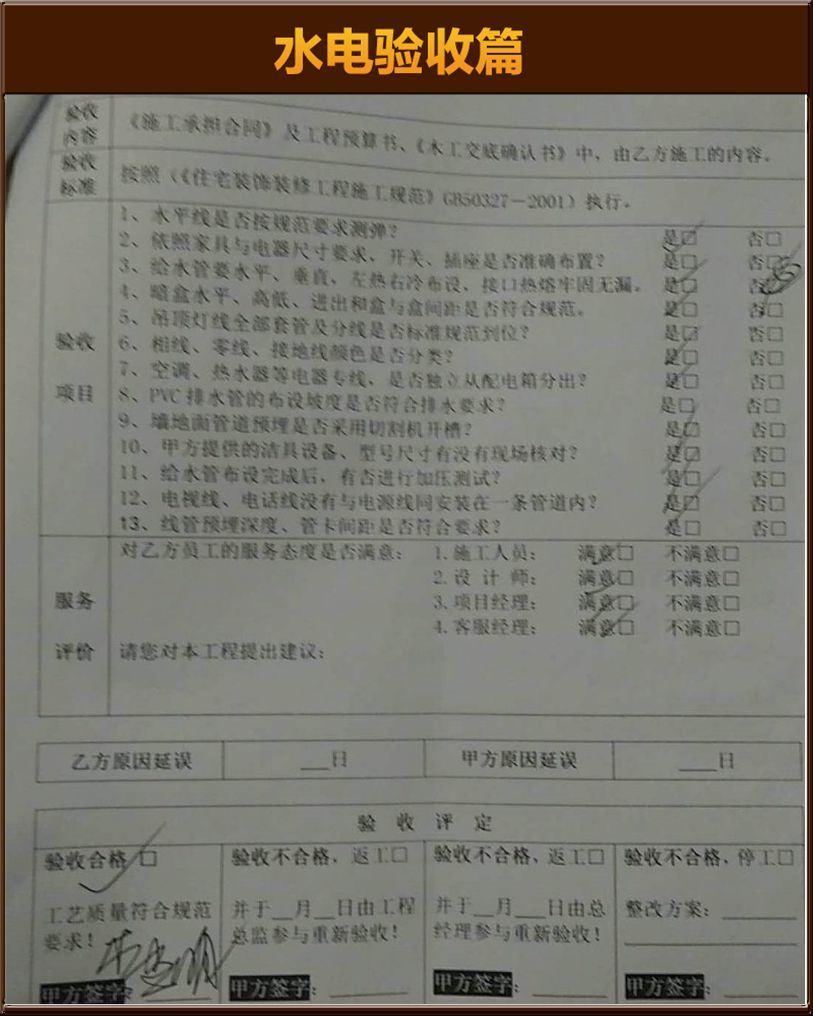 水电验收篇
验收内容
《施工承担合同》及工程预算书、《木工交底确认书》中，由乙方施工的内容。
验收标准
按照（《住宅装饰装修工程施工规范》GB50327－2001）执行。
验收项目
1、水平线是否按规范要求测弹？ 是□ 否□
2、依照家具与电器尺寸要求，开关、插座是否准确布置？ 是□ 否□
3、给水管要水平、垂直，左热右冷布设，接口热熔牢固无漏。 是□ 否□
4、暗盒水平、高低、进出和盒与盒间距是否符合规范。 是□ 否□
5、吊顶灯线全部套管及分线是否标准规范到位？ 是□ 否□
6、相线、零线、接地线颜色是否分类？ 是□ 否□
7、空调、热水器等电器专线，是否独立从配电箱分出？ 是□ 否□
8、PVC排水管的布设坡度是否符合排水要求？ 是□ 否□
9、墙地面管道预埋是否采用切割机开槽？ 是□ 否□
10、甲方提供的洁具设备、型号尺寸有没有现场核对？ 是□ 否□
11、给水管布设完成后，有否进行加压测试？ 是□ 否□
12、电视线、电话线没有与电源线同安装在一条管道内？ 是□ 否□
13、线管预埋深度、管卡间距是否符合要求？ 是□ 否□
服务评价
对乙方员工的服务态度是否满意： 1.施工人员： 满意□ 不满意□
2.设 计 师： 满意□ 不满意□
3.项目经理： 满意□ 不满意□
4.客服经理： 满意□ 不满意□
请您对本工程提出建议：
乙方原因延误 ___日 甲方原因延误 ___日
验 收 评 定
验收合格 □
工艺质量符合规范
要求！
甲方签字：
验收不合格，返工□
并于__月__日由工程
总监参与重新验收！
甲方签字：
验收不合格，返工□
并于__月___日由总
经理参与重新验收！
甲方签字：
验收不合格，停工□
整改方案：
甲方签字：